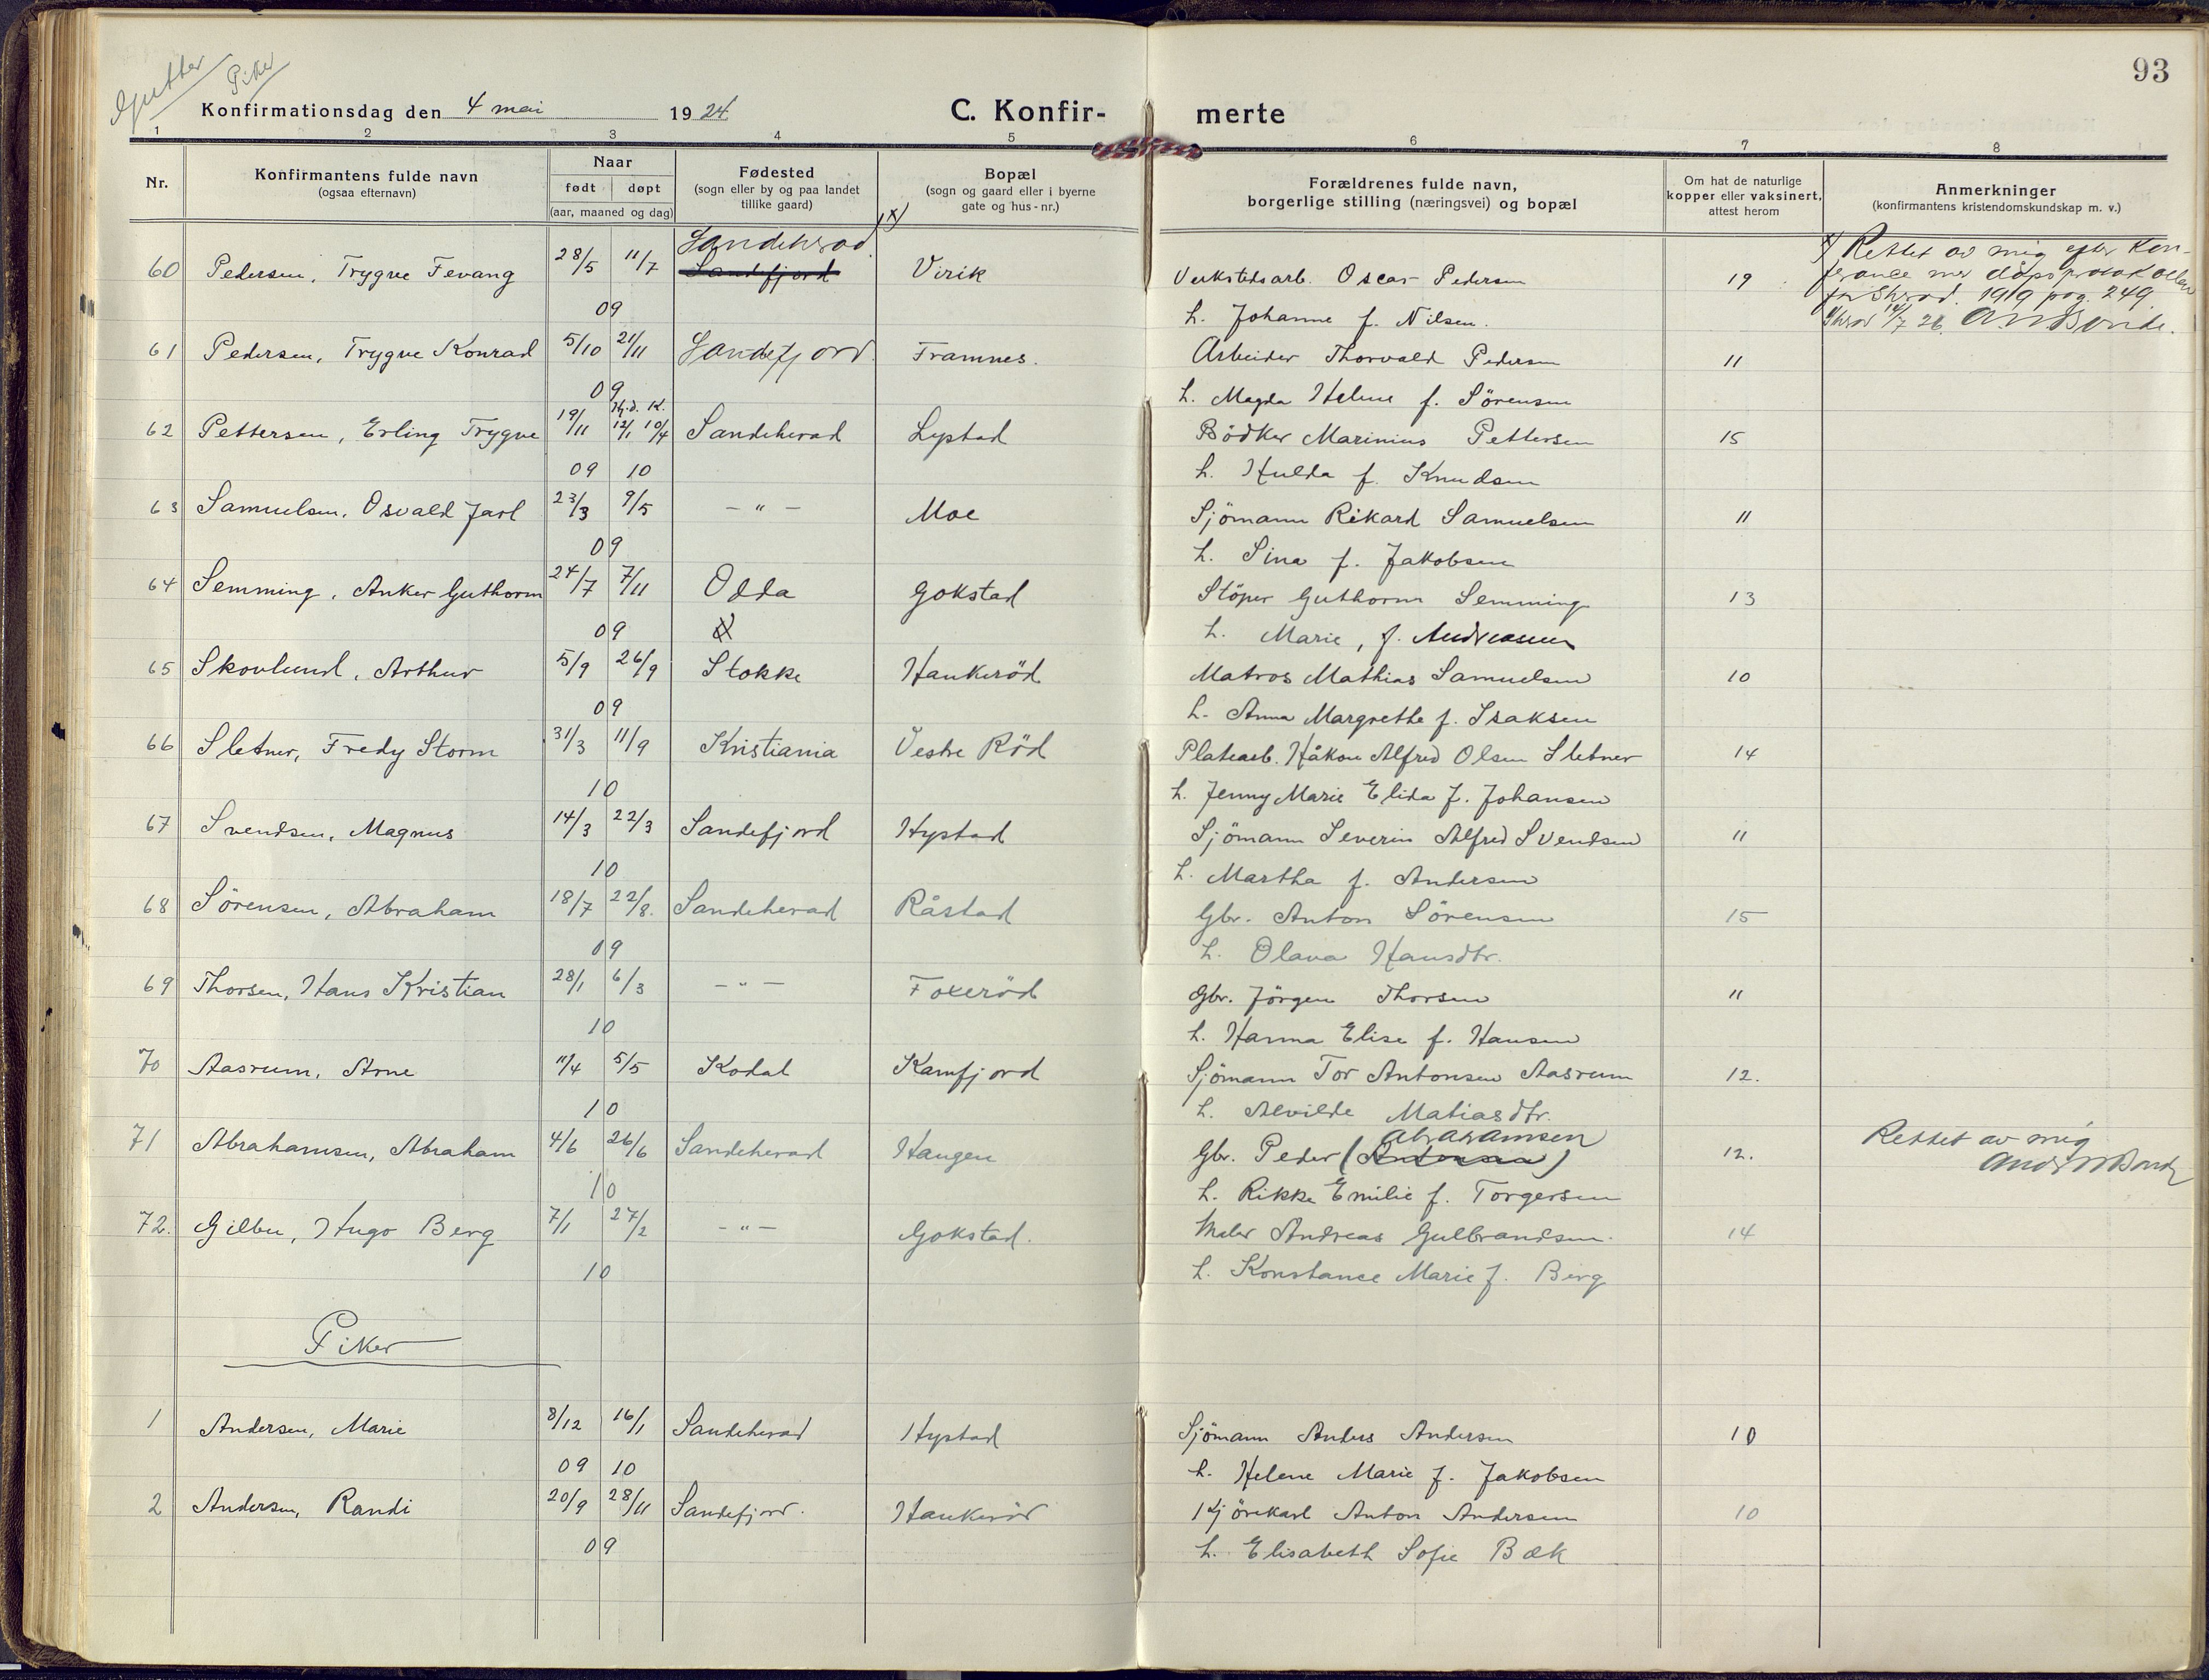 Gutter
Piker
93
Konfirmationsdag den 4 mai 1924
C. Konfir-
merte
1 2 3 4 5 6 7 8
Nr.
Konfirmantens fulde navn
(ogsaa efternavn)
Naar
født døpt
(aar, maaned og dag)
Fødested
(sogn eller by og paa landet
tillike gaard)
Bopæl
(sogn og gaard eller i byerne
gate og hus-nr.)
Forældrenes fulde navn,
borgerlige stilling (næringsvei) og bopæl
Om hat de naturlige
kopper eller vaksinert,
attest herom
Anmerkninger
(konfirmantens kristendomskundskap m. v.)
x)
Sandeherad
60 Pedersen, Trygve Fevang 28/5 11/7 Sandefjord Virik Verkstedsarb. Oscar Pedersen 19
09 h. Johanne f. Nilsen.
x) Rettet av mig efter Kon-
feranse med dåpsprotokollen
for Shrad. 1919 pag. 249
Shrad 14/7 26.
61 Pedersen, Trygve Konrad 5/10 21/11 Sandefjord. Framnes. Arbeider Thorvald Pedersen 11
09 h. Magda Helene f. Sörensen
Hj.d. K.
62 Pettersen, Erling Trygve 19/11 12/1 10/4 Sandeherad Lystad Bödker Marinius Pettersen 15
09 10 h. Hulda f. Knudsen
63 Samuelsen, Osvald Jarl 23/3 9/5 - " - Moe Sjömann Rikard Samuelsen 11
09 h. Sina f. Jakobsen
64 Semming, Anker Guthorm 24/7 7/11 Odda Gokstad Stöper Guthorm Semming 13
09 h. Marie, f. Andreasen
65 Skovlund, Arthur 5/9 26/9 Stokke Haukeröd Matros Mathias Samuelsen 10
09 h. Anna Margrethe f. Isaksen
66 Sletner, Fredy Storm 31/3 11/9 Kristiania Vestre Röd Platearb. Håkon Alfred Olsen Sletner 14
10 h. Jenny Marie Elida f. Johansen
67 Svendsen, Magnus 14/3 22/3 Sandefjord Hystad Sjömann Severin Alfred Svendsen 11
10 h. Martha f. Andersen
68 Sörensen, Abraham 18/7 22/8. Sandeherad Råstad Gbr. Anton Sörensen 15
09 h. Olava Hansdtr.
69 Thorsen, Hans Kristian 28/1 6/3 - " - Foxeröd Gbr. Jörgen Thorsen 11
10 h. Hanna Elise f. Hansen
70 Aasrum, Arne 11/4 5/5 Kodal Kamfjord Sjömann Tor Antonsen Aasrum 12.
10 h. Alvilde Matiasdtr.
Abrahamsen
71 Abrahamsen, Abraham 4/6 26/6 Sandeherad Haugen Gbr. Peder (Antonsen) 12. Rettet av mig
10 h. Rikke Emilie f. Torgersen
72. Gilbu, Hugo Berg 7/1 27/2 - " - Gokstad. Maler Andreas Gulbrandsen. 14
10 h. Konstanse Marie f. Berg
Piker
1 Andersen, Marie 8/12 16/1 Sandeherad Hystad Sjömann Anders Andersen 10
09 10 h. Helene Marie f. Jakobsen
2 Andersen, Randi 20/9 28/11 Sandefjord. Haukeröd Kjörekarl Anton Andersen 10
09 h. Elisabeth Sofie Bæk